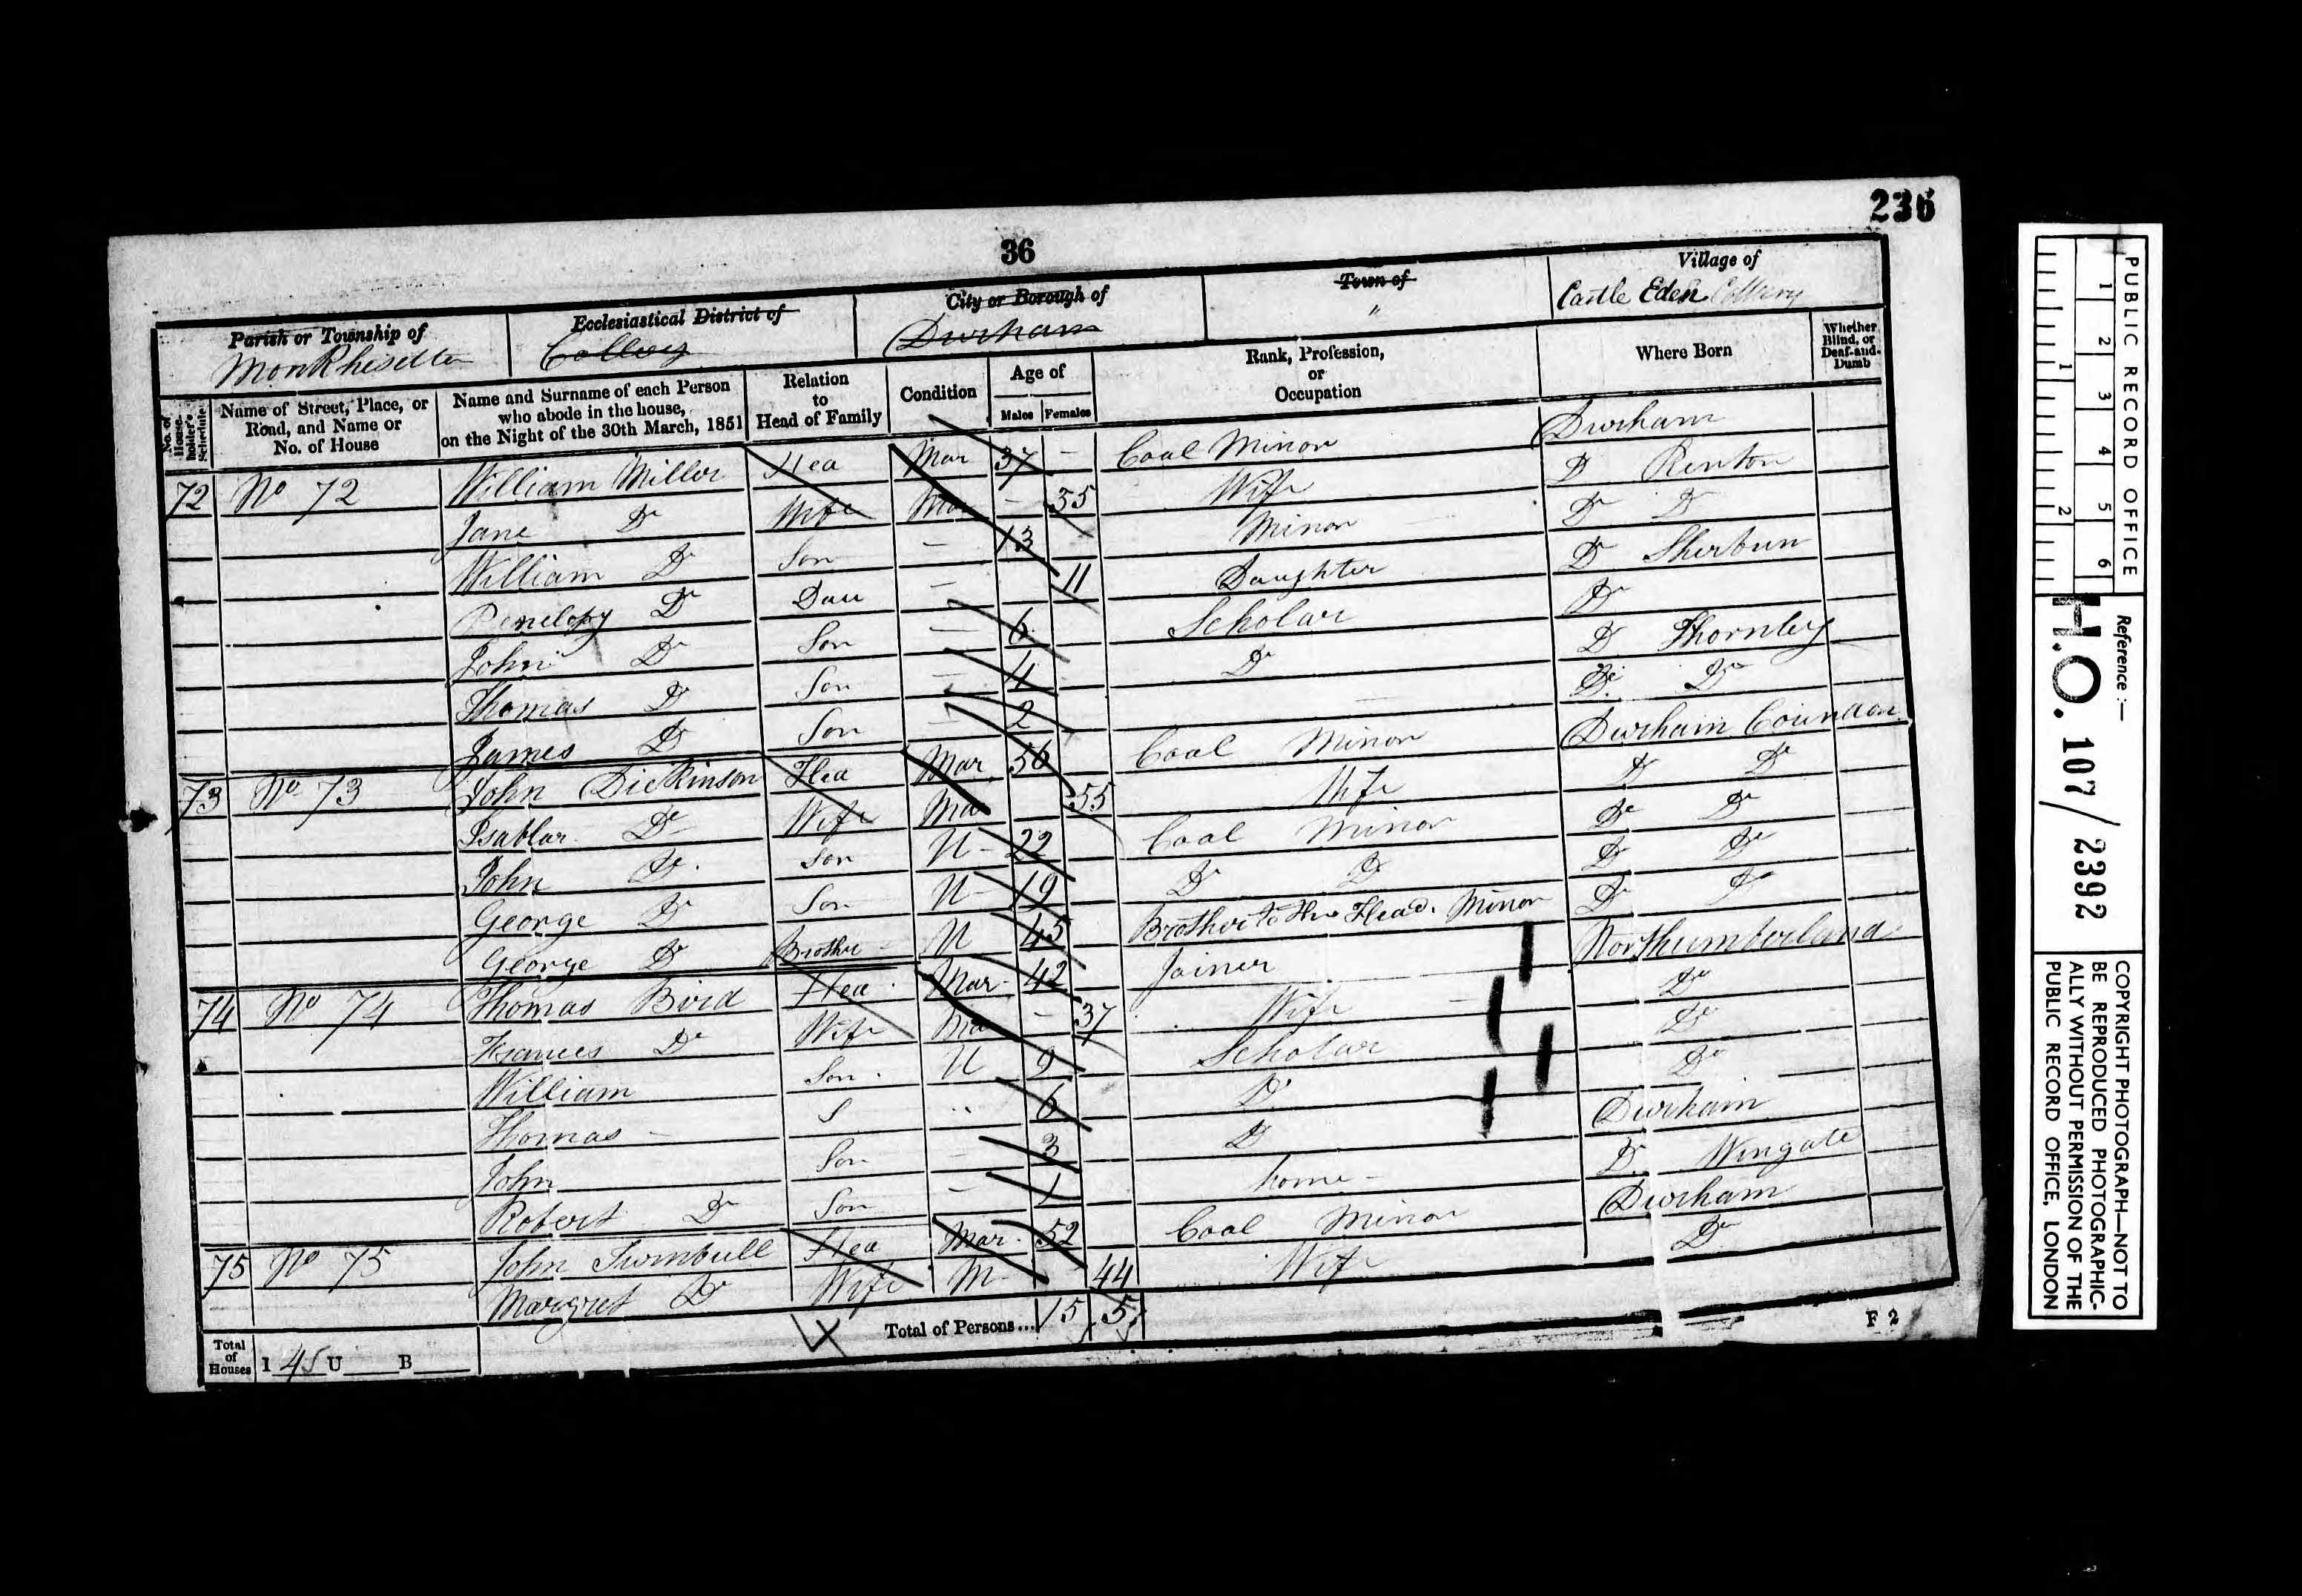 236
36
Parish or Township of
Ecclesiastical District of
City or Borough of
Town of
Village of
Monkhiselton
Collery
Durham
"
Castle Eden Collery
No. of House-holder's Schedule
Name of Street, Place, or Road, and Name or No. of House
Name and Surname of each Person who abode in the house, on the Night of the 30th March, 1851
Relation to Head of Family
Condition
Age of
Males
Females
Rank, Profession, or Occupation
Where Born
Whether Blind, or Deaf-and-Dumb
72 No 72 William Miller Hea Mar 37 - Coal Minor Durham
Jane Do Wife Mar - 35 Wife Do Renton
William Do Son - 13 Minor Do Do
Penelopy Do Dau - 11 Daughter Do Sherburn
John Do Son - 6 Scholar Do
Thomas Do Son - 4 Do Do Thornley
James Do Son - 2 Do Do
73 No 73 John Dickinson Hea Mar 56 Coal Minor Durham Coundon
Isablar Do Wife Mar 55 Wife Do Do
John Do Son U 22 Coal Minor Do Do
George Do Son U 19 Do Do Do Do
George Do Brother U 45 Brother to the Head. Minor Do Do
74 No 74 Thomas Bird Hea Mar 42 Joiner Northumberland
Frances Do Wife Mar - 37 Wife Do
William Son U 9 Scholar Do
Thomas S " 6 Do Do
John Son - 3 Do Durham
Robert Do Son - 1 home Do Wingate
75 No 75 John Turnbull Hea Mar 52 Coal Minor Durham
Margret Do Wife M 44 Wife Do
Total of Houses I 4 U B
Total of Persons... 15 5
F 2
PUBLIC RECORD OFFICE
1 2 3 4 5 6
1 2
Reference :-
H.O. 107 / 2392
COPYRIGHT PHOTOGRAPH—NOT TO
BE REPRODUCED PHOTOGRAPHIC-
ALLY WITHOUT PERMISSION OF THE
PUBLIC RECORD OFFICE, LONDON